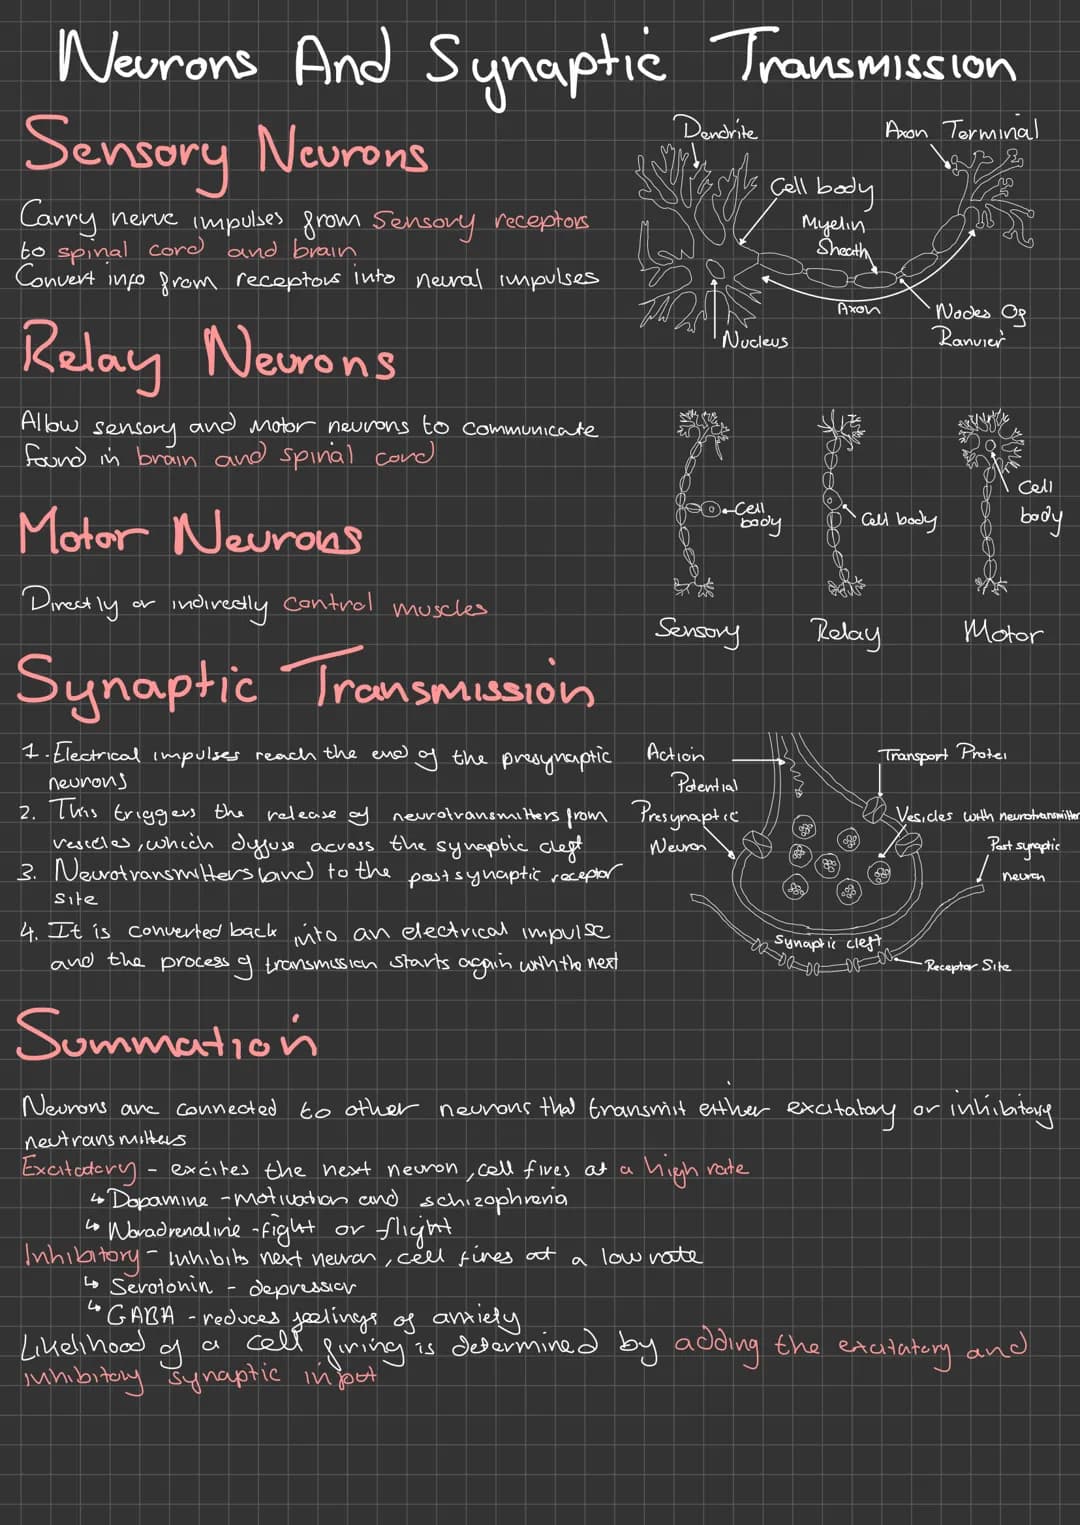 Neurons And Synaptic Transmission
Sensory Neurons
Carry nerve impulses from Sensory receptors
to spinal cord and brain
Convert info from receptors into neural impulses
Dendrite
Axon Terminal
Cell body
Myelin
Sheath
Axon
Nodes Of
Ranvier
Nucleus
Relay Neurons
Allow sensory and Motor neurons to communicate
found in brain and spinal cord
Motor Neurons
Directly or indirectly control muscles
Cell
body
Cell body
Cell
body
Sensory
Relay
Motor
Synaptic Transmission
1. Electrical impulses reach the end of the presynaptic
neurons
2. This triggers the release of neurotransmitters from
vesicles, which dyffuse across the synaptic cleft
3. Neurotransmitters band to the postsynaptic receptor
site
4. It is converted back into an electrical impulse
and the process of transmission starts again with the next
Action
Potential
Presynaptic
Neuron
Transport Protei
Vesicles with neurotransmitter
Post synaptic
neuron
Synaptic cleft
Receptor Site
Summation
Neurons are connected to other neurons that transmit either excitatory or inhibitory
neutransmitters
Excitatory - excites the next neuron, cell fires at a high rate
↳ Dopamine - motivation and schizophrenia
↳ Noradrenaline - fight or flight
Inhibitory - inhibits next neuron, cell fires at a low rate
↳ Serotonin - depression
↳ GABA - reduces feelings of anxiety
Likelihood of a cell firing is determined by adding the excitatory and
inhibitory synaptic input